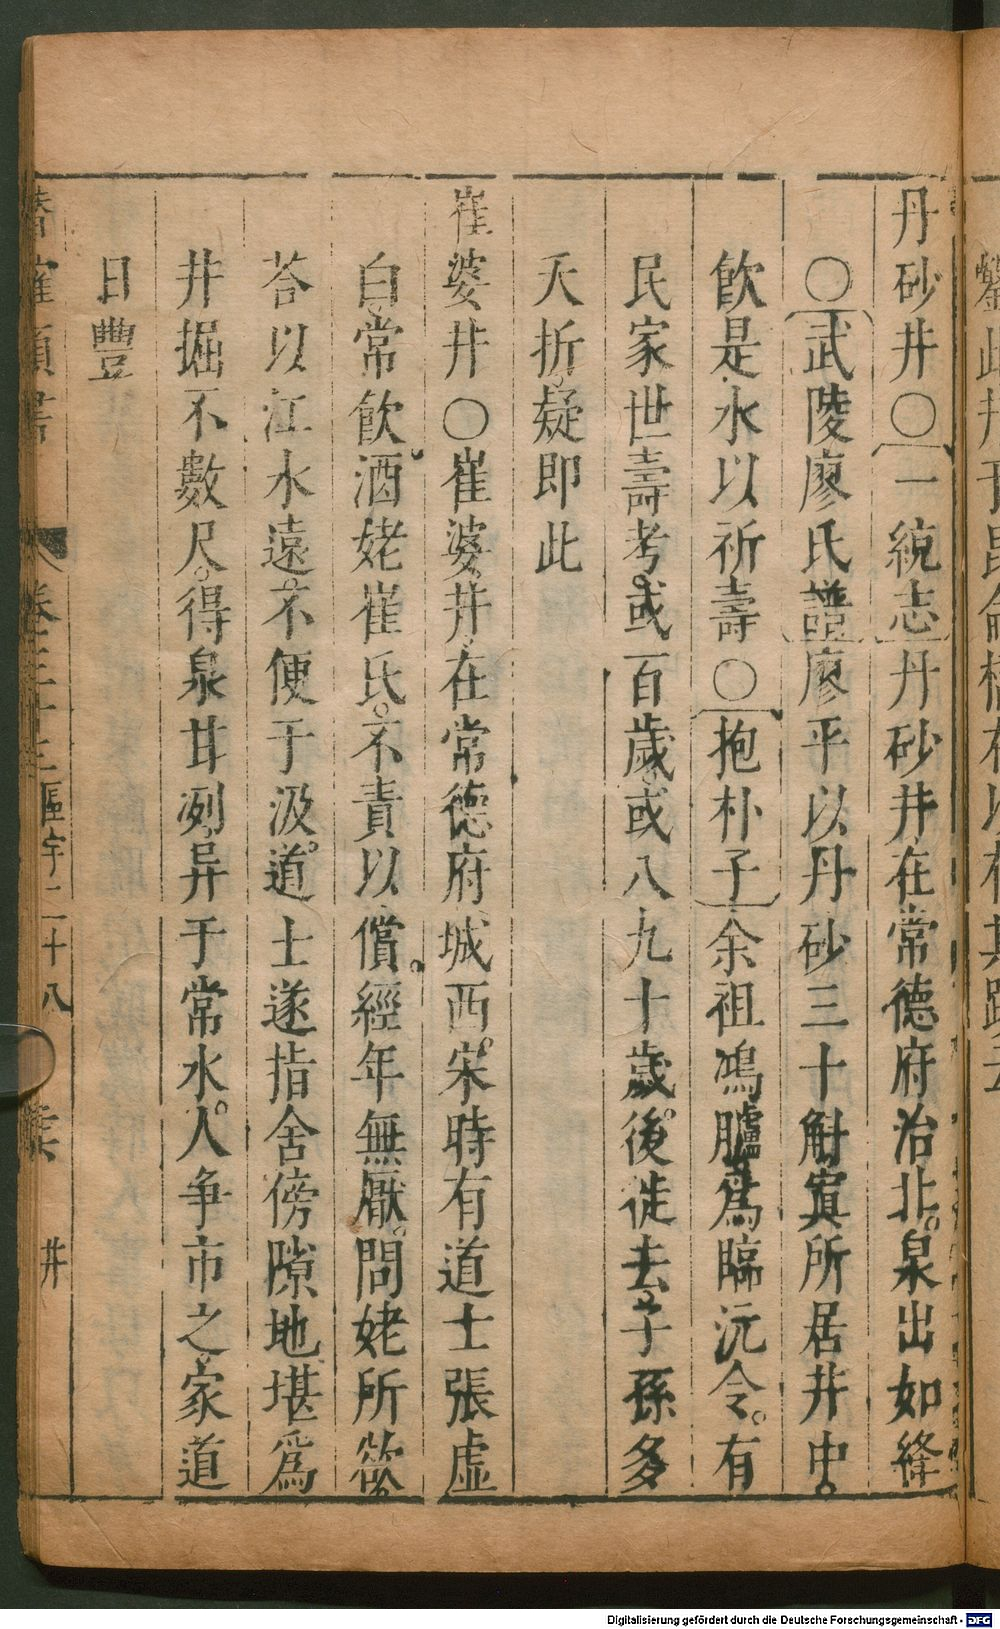 丹砂井○一統志丹砂井在常德府治北。泉出如絳
○武陵廖氏譜廖平以丹砂三十斛寘所居井中。
飲是水以祈壽○抱朴子余祖鴻臚爲臨沅令。有
民家世壽考。或百歲。或八九十歲後。徙去。子孫多
夭折。疑即此
崔婆井○崔婆井。在常德府城西。宋時有道士張虛
白。常飲酒姥崔氏。不責以償。經年無厭。問姥所欲
荅以江水遠。不便于汲。道士遂指舍傍隙地。堪爲
井掘不數尺。得泉甘冽异于常水。人争市之。家道
日豐
卷三十三 區宇二十八 井
Digitalisierung gefördert durch die Deutsche Forschungsgemeinschaft - DFG